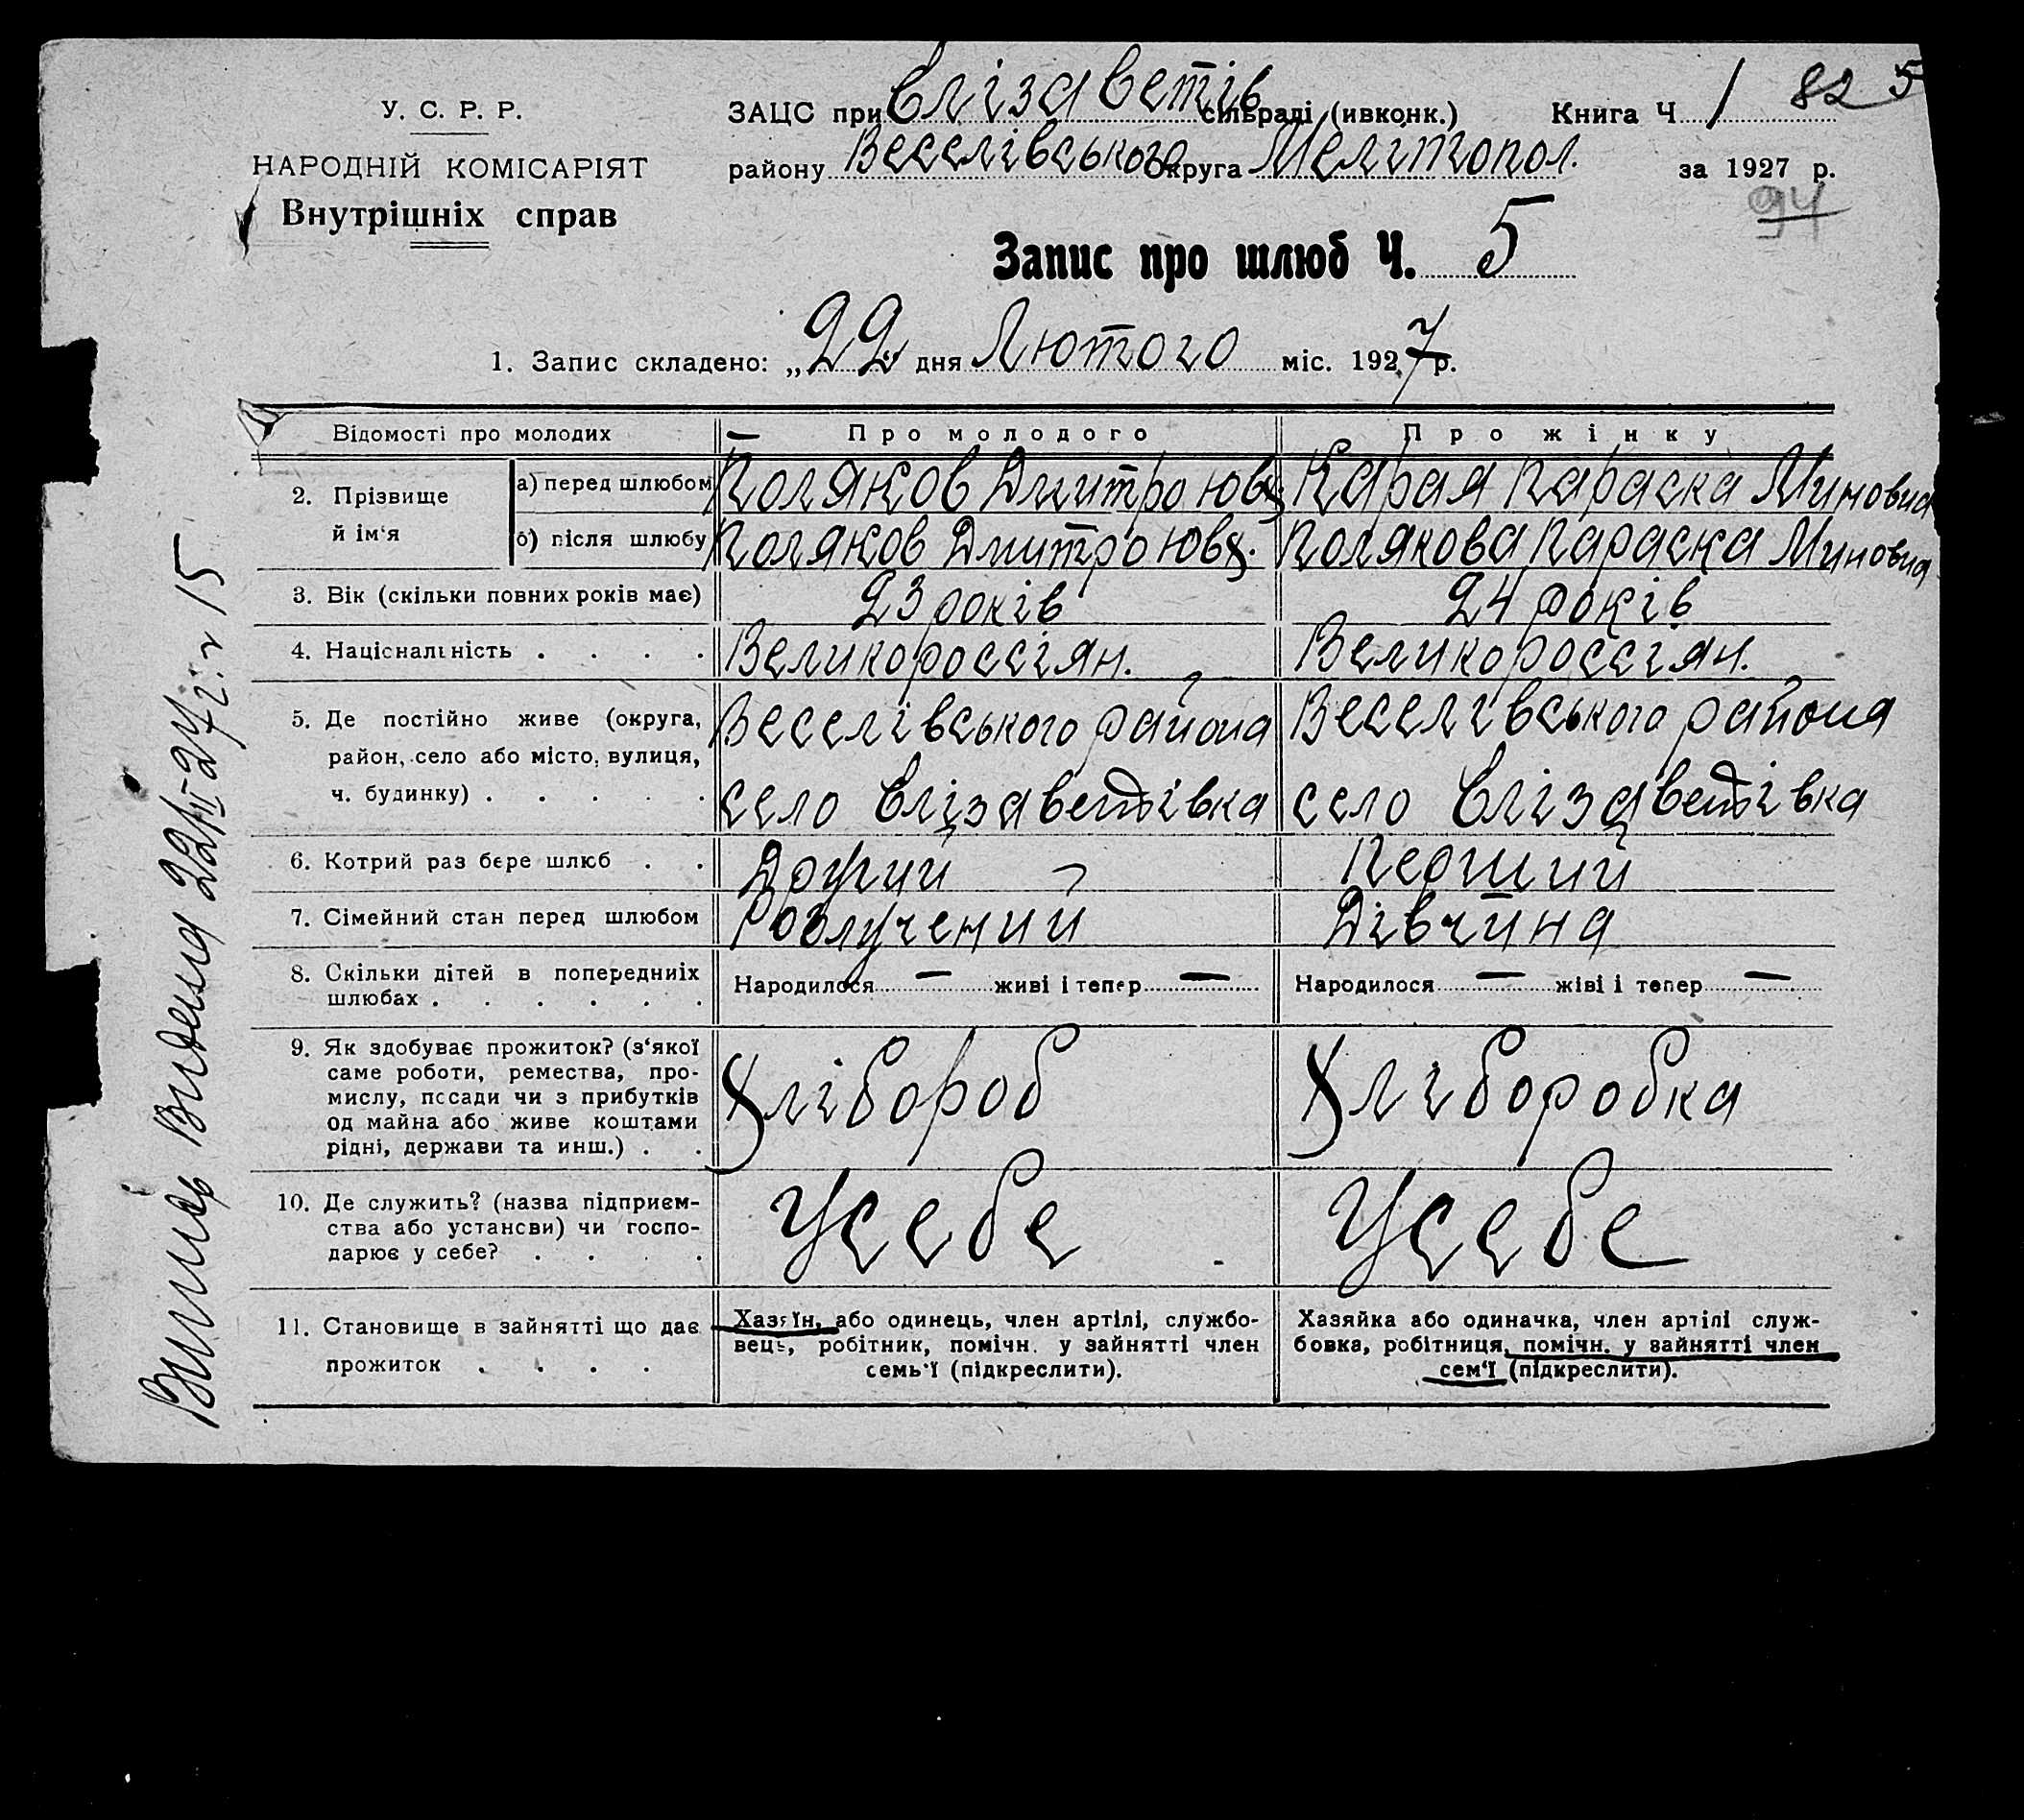 У. С. Р. Р.
НАРОДНІЙ КОМІСАРІЯТ
Внутрішніх справ
ЗАЦС при Єлізаветів сільраді (ивконк.) Книга Ч. 1 82 5
району Веселівського Округа Мелітопол. за 1927 р.
94
Запис про шлюб Ч. 5
1. Запис складено: „22“ дня Лютого міс. 1927 р.
Відомості про молодих Про молодого Про жінку
2. Прізвище й ім‘я
а) перед шлюбом Поляков Дмитро Юв Карая Параска Миновна
б) після шлюбу Поляков Дмитро Юв Полякова Параска Миновна
3. Вік (скільки повних років має) 23 років 24 років
4. Національність . . . . Великороссіян. Великороссіян.
5. Де постійно живе (округа, Веселівського района Веселівського района
район, село або місто, вулиця,
ч. будинку) . . . . . село Єлізаветівка село Єлізаветівка
6. Котрий раз бере шлюб . . Другий Перший
7. Сімейний стан перед шлюбом Розлучений Дівчина
8. Скільки дітей в попередниіх Народилося — живі і тепер — Народилося — жіві і тепер —
шлюбах . . . . . .
9. Як здобуває прожиток? (з‘якої
саме роботи, ремества, про-
мислу, посади чи з прибутків Хлібороб Хліборобка
од майна або живе коштами
рідні, держави та инш.) . .
10. Де служить? (назва підприєм-
ства або установи) чи госпо- Усебе Усебе
дарює у себе? . . . .
11. Становище в зайнятті що дає
прожиток . . . .
Хазяїн, або одинець, член артілі, службо-
вець, робітник, помічн. у зайнятті член
семь‘ї (підкреслити).
Хазяйка або одиначка, член артілі служ-
бовка, робітниця, помічн. у зайнятті член
сем‘ї (підкреслити).
Видена 22/II 27 г. 15